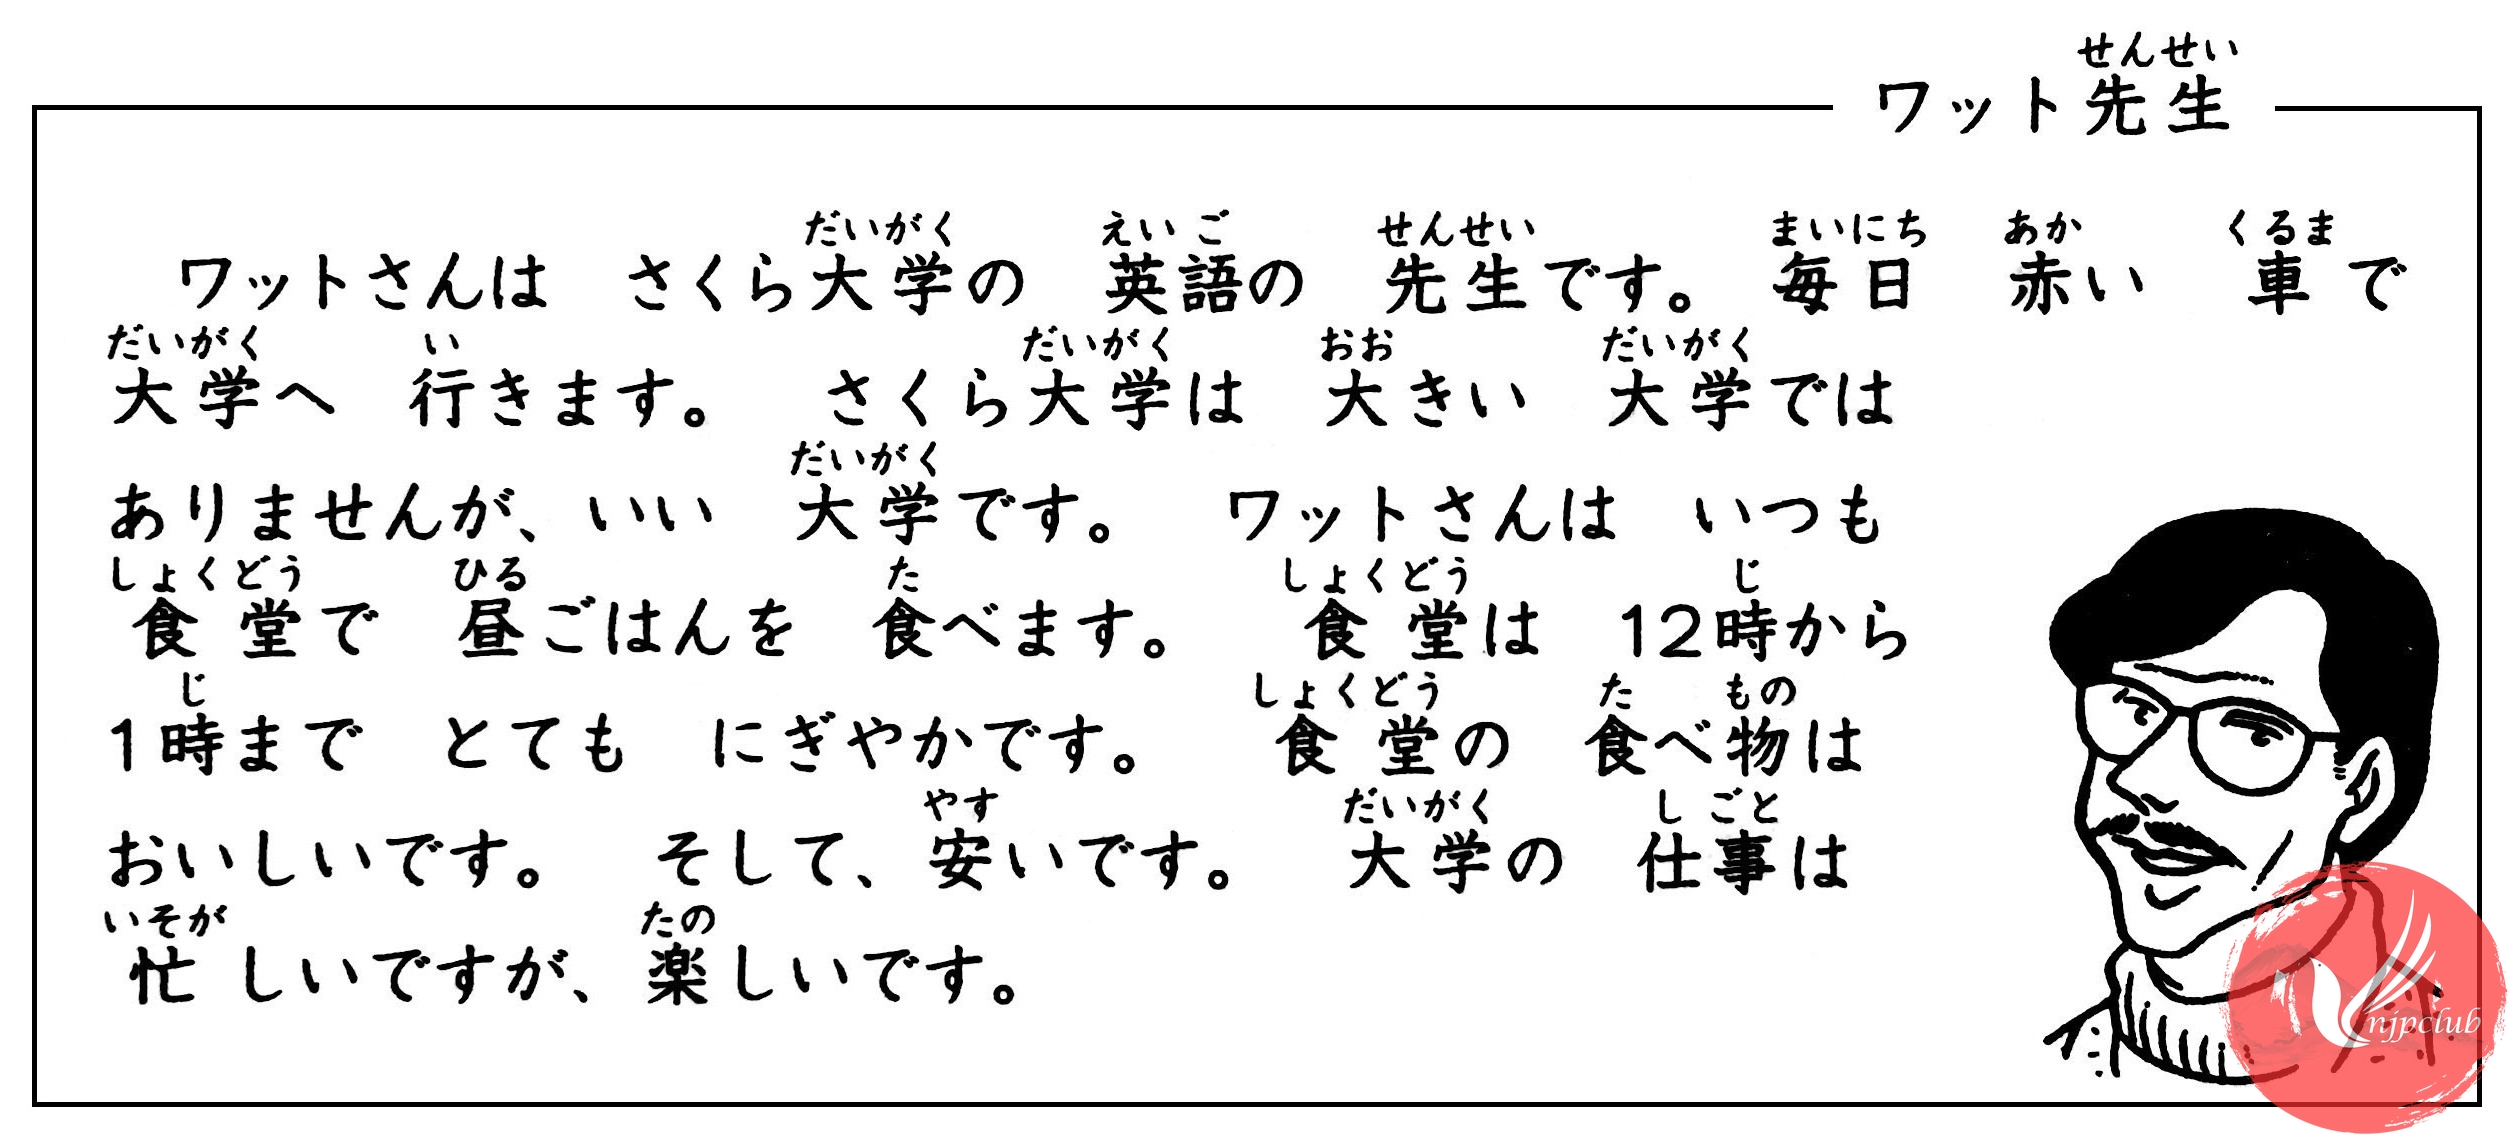 せんせい
ワット先生
だいがく えいご せんせい まいにち あか くるま
ワットさんは さくら大学の 英語の 先生です。 毎日 赤い 車で
だいがく い だいがく おお だいがく
大学へ 行きます。 さくら大学は 大きい 大学では
だいがく
ありませんが、いい 大学です。 ワットさんは いつも
しょくどう ひる た しょくどう じ
食堂で 昼ごはんを 食べます。 食堂は 12時から
じ しょくどう た もの
1時まで とても にぎやかです。 食堂の 食べ物は
やす だいがく しごと
おいしいです。 そして、安いです。 大学の 仕事は
いそが たの
忙しいですが、楽しいです。
njpclub